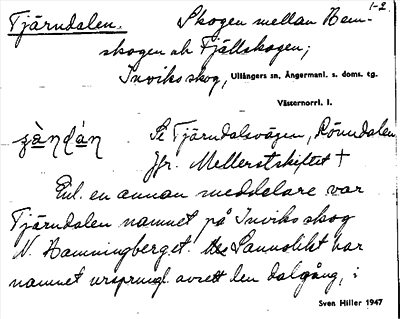 1-2
Tjärndalen. Skogen mellan Ham-
skogen och Fjällskogen;
Inviksskog, Ullångers sn, Ångermanl. s. doms. tg.
Västernorrl. l.
Se Tjärndalsvägen, Rönndalen
Jfr. Mellerstskiftet †
Enl. en annan meddelare var
Tjärndalen namnet på Inviks skog
N. Hamningberget. Sannolikt har
namnet ursprungl. avsett den dalgång, i
Sven Hiller 1947